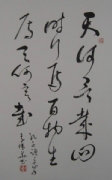 天何言哉四
時行焉百物生
焉天何言哉